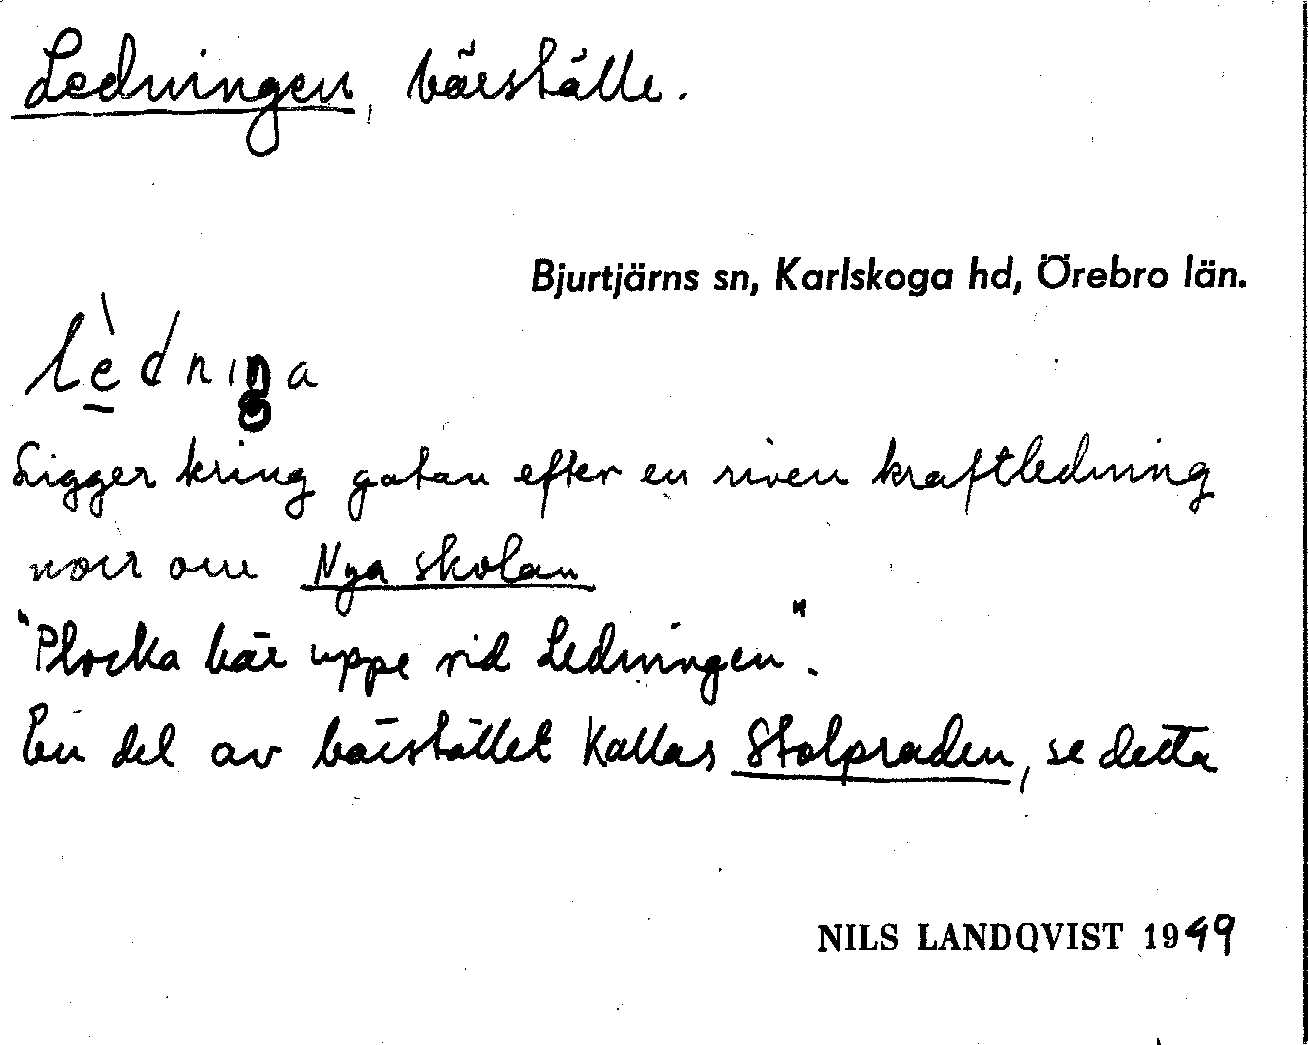 Ledningen, bärställe.
Bjurtjärns sn, Karlskoga hd, Örebro län.
lèdniŋa
Ligger kring gatan efter en riven kraftledning
norr om Nya skolan
"Plocka bär uppe vid Ledningen".
En del av bärstället kallas Stolpraden, se detta
NILS LANDQVIST 1949